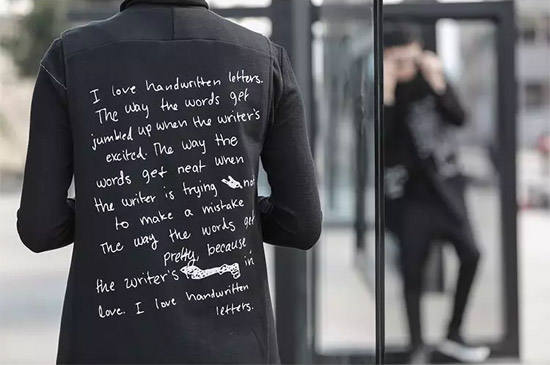 I love handwritten letters.
The way the words get
jumbled up when the writer's
excited. The way the
words get neat when
the writer is trying not
to make a mistake
The way the words get
pretty, because
the writer's in
love. I love handwritten
letters.